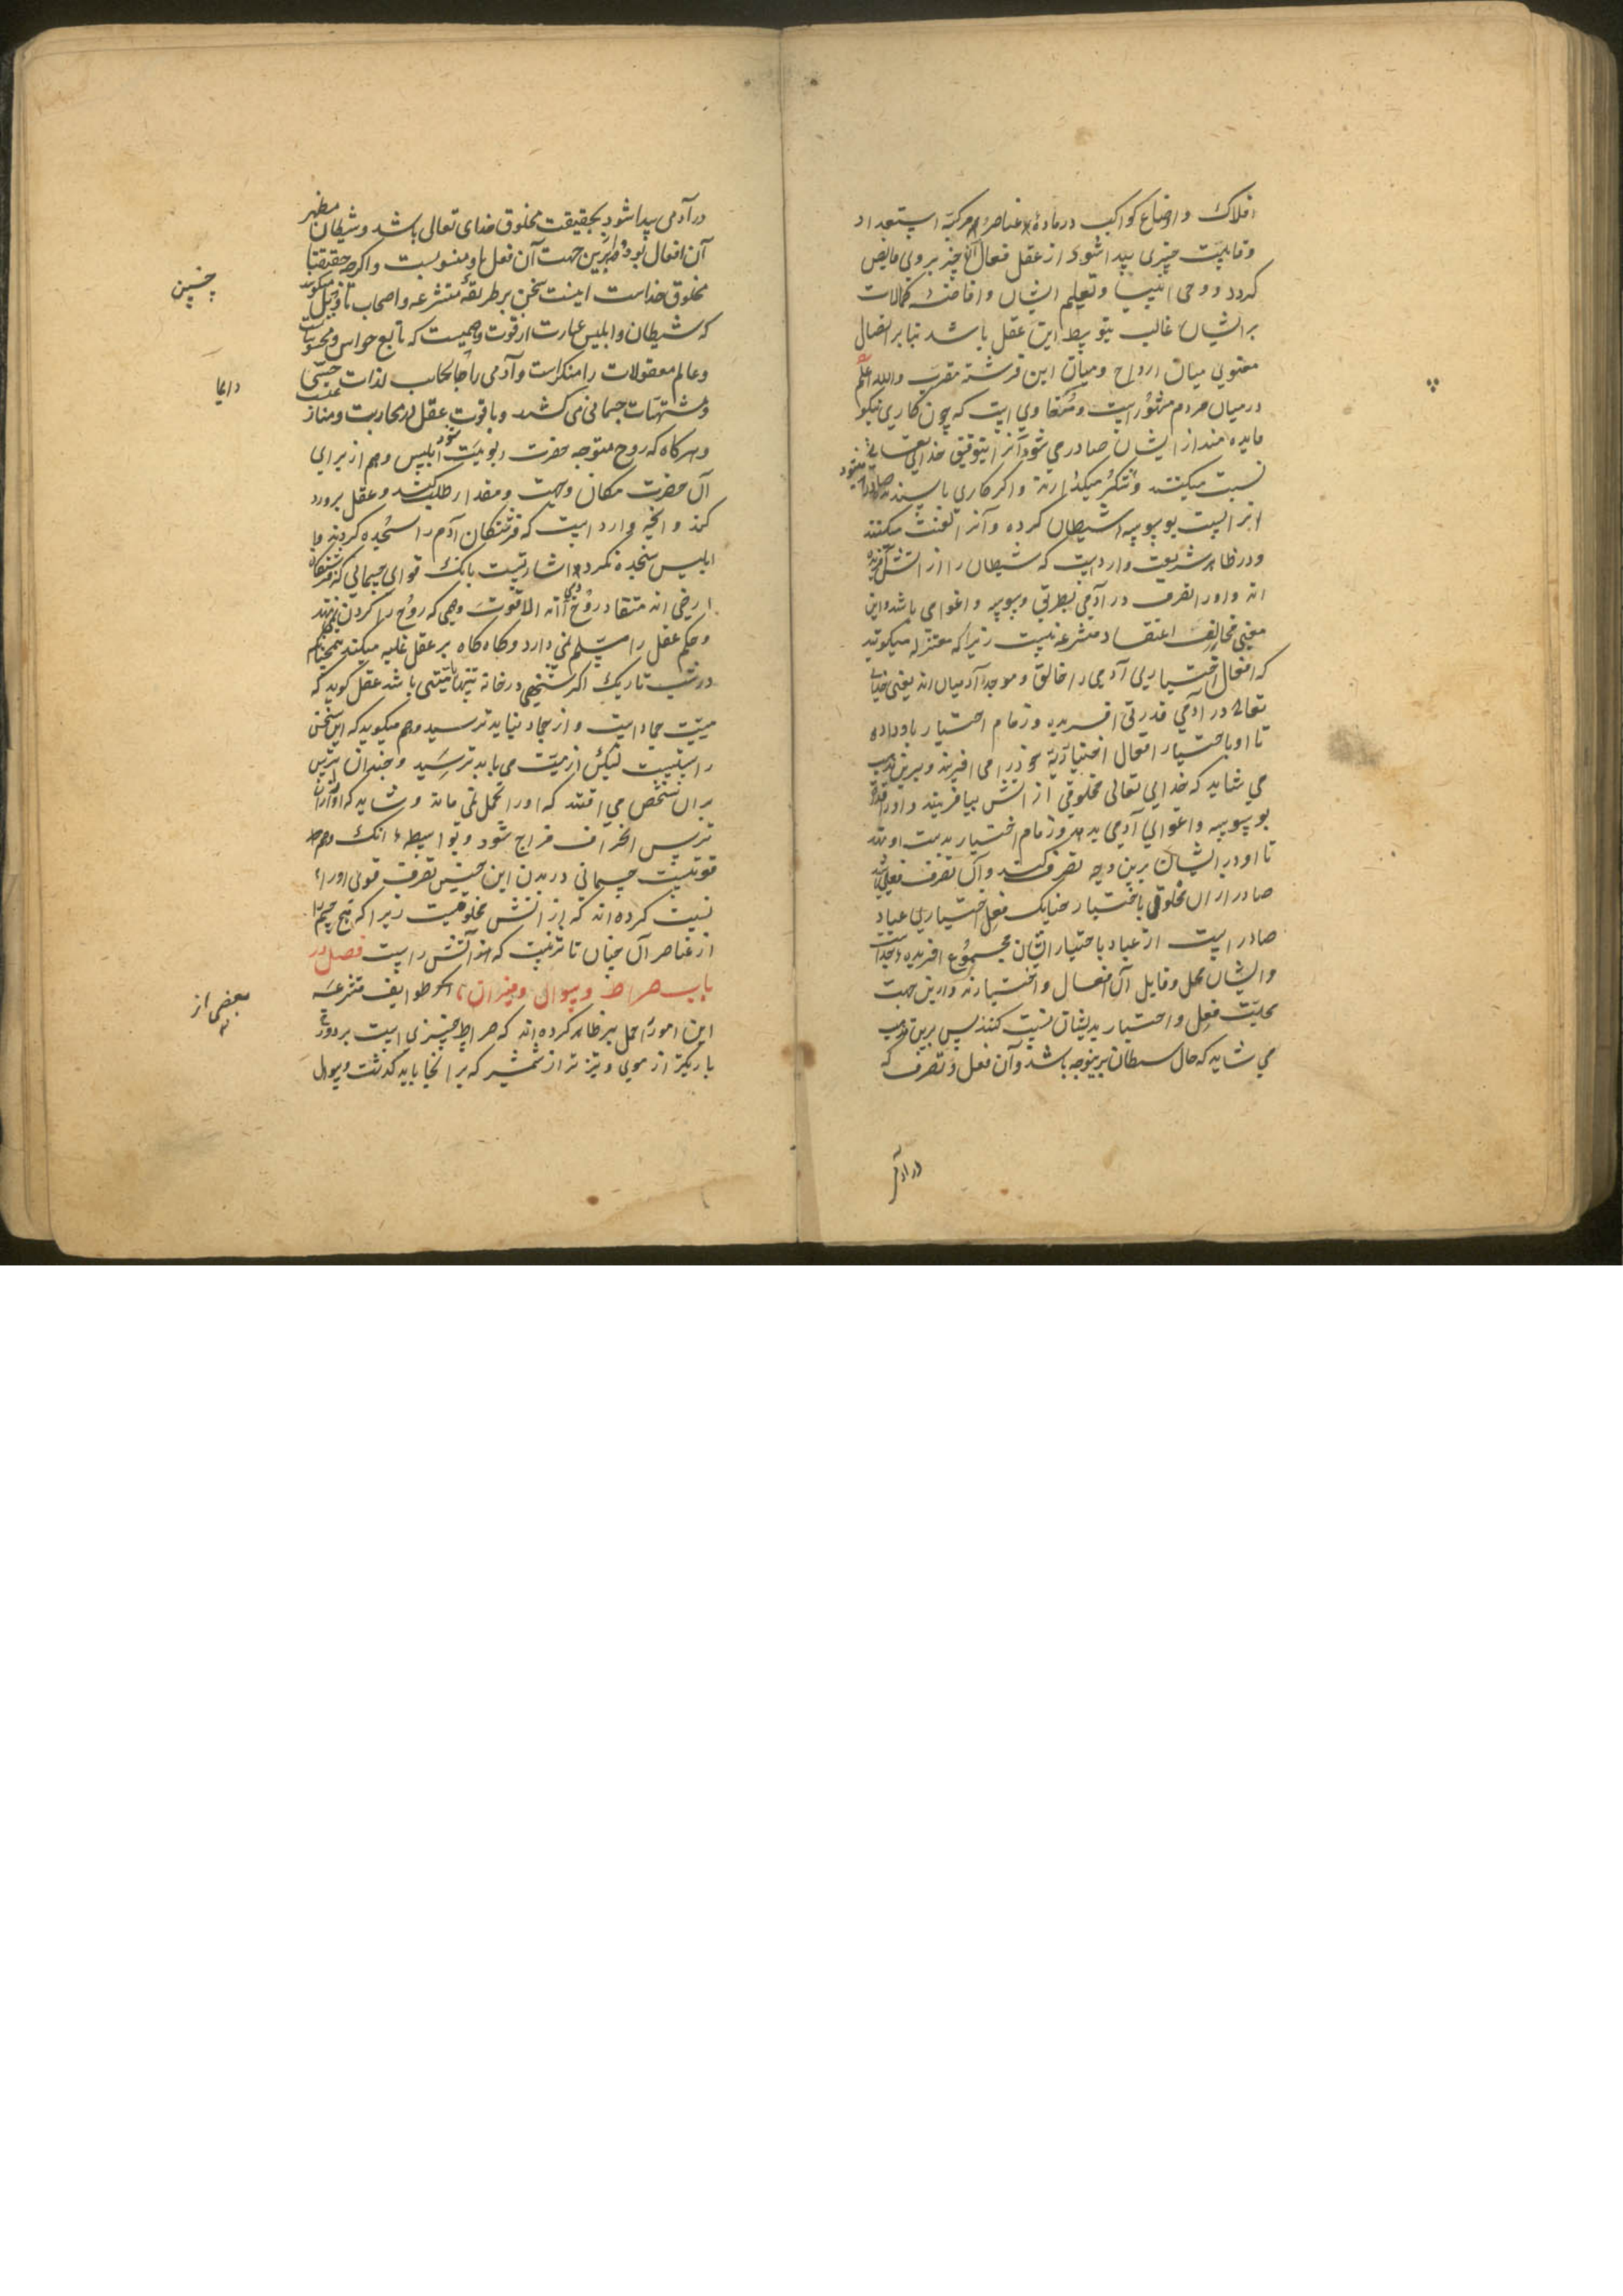 افلاک و اوضاع کواکب در مادهٔ عناصر مرکبه استعداد
و قابلیت چیزی پیدا شود از عقل فعال آن چیز بروی فایض
کردد و وحی انبیا و تعلیم ایشان و افاضت کمالات
بر ایشان غالب بتوسط این عقل باشد بنا بر اتصال
معنوی میان ارواح و میان این فرشته مقرب والله اعلم
در میان مردم مشهور است و متعارفست که چون کاری نیکو
فایده مند از ایشان صادر می شود آنرا بتوفیق خدای تعالی
نسبت میکنند و شکر میکذارند و اکر کاری ناپسندیده صادر میشود
انرا نسبت بوسوسه شیطان کرده و آنرا لعنت میکنند
و در ظاهر شریعت وارد است که شیطان را از آتش آفریده
اند و او را تصرف در آدمی بطریق وسوسه و اغوا می باشد و این
معنی مخالف اعتقاد متشرعه نیست زیرا که معتزله میکویند
که افعال اختیاری آدمی را خالق و موجد آدمیان اند یعنی خدای
تعالی در آدمی قدرتی افریده و زمام اختیار باو داده
تا او باختیار افعال اختیاریه خود را می افریند و برین مذهب
می شاید که خدای تعالی مخلوقی از اتش بیافریند و او را قدرت
بوسوسه و اغوای آدمی بدهد و زمام اختیار بدست او نهد
تا او در ایشان برین وجه تصرف کند و آن تصرف فعلی باشد
صادر از آن مخلوق باختیار چنانک فعل اختیاری عباد
صادر است از عباد باختیار ایشان مجموع افریده خداست
و ایشان محل و قابل آن افعال و اختیارند و ازین جهت
محلیت فعل و اختیار بدیشان نسبت کنند پس برین مذهب
می شاید که حال شیطان برینوجه باشد و آن فعل و تصرف که
در آدم
در آدمی پیدا شود بحقیقت مخلوق خدای تعالی باشد و شیطان مظهر
آن افعال بود و ازین جهت آن فعل باو منسوبست و اکرچه حقیقتا
مخلوق خداست اینست سخن بر طریقهٔ متشرعه و اصحاب تاویل میکویند
چنین
که شیطان و ابلیس عبارت از قوت وهمیست که تابع حواس و محسوسات
و عالم معقولات را منکر است و آدمی را بجانب لذات حسی
دایما
و مشتهیات جسمانی می کشد و با قوت عقل در محاربت و منازعتست
و هرکاه که روح متوجه حضرت ربوبیت شود ابلیس وهم از برای
آن حضرت مکان و جهت و مقدار طلب کند و عقل برورد
کند و انچه وارد است که فرشتکان آدم را سجده کردند و
ابلیس سجده نکرد اشارتیست بانک قوای جسمانی که فرشتکان
ارضی اند منقاد روح آدمی اند الا قوت وهمی که روح را کردن ننهد
و حکم عقل را مسلم نمی دارد و کاه کاه بر عقل غلبه میکند همچنانکه
در شب تاریک اکر شخصی در خانه تنها با میتی باشد عقل کوید که
میت جماد است و از جماد نباید ترسید وهم میکوید که این سخن
راستست لیکن از میت می باید ترسید و چندان ترس
بران شخص می افتد که او را تحمل نمی ماند و شاید که او را از ان
ترس انحراف مزاج شود و بواسطه انک وهم
قوتیست جسمانی در بدن این جنس تصرف قوی او را
نسبت کرده اند که از اتش مخلوقست زیرا که هیچ جسم را
از عناصر آن چنان تاثر نیست که اتش راست فصل در
باب صراط و سوال و میزان اکثر طوایف متشرعه
بعضی از
این امور را حمل بر ظاهر کرده اند که صراط چیزی است بر دوزخ
باریکتر از موی و تیزتر از شمشیر که بر انجا باید کذشت و سوال